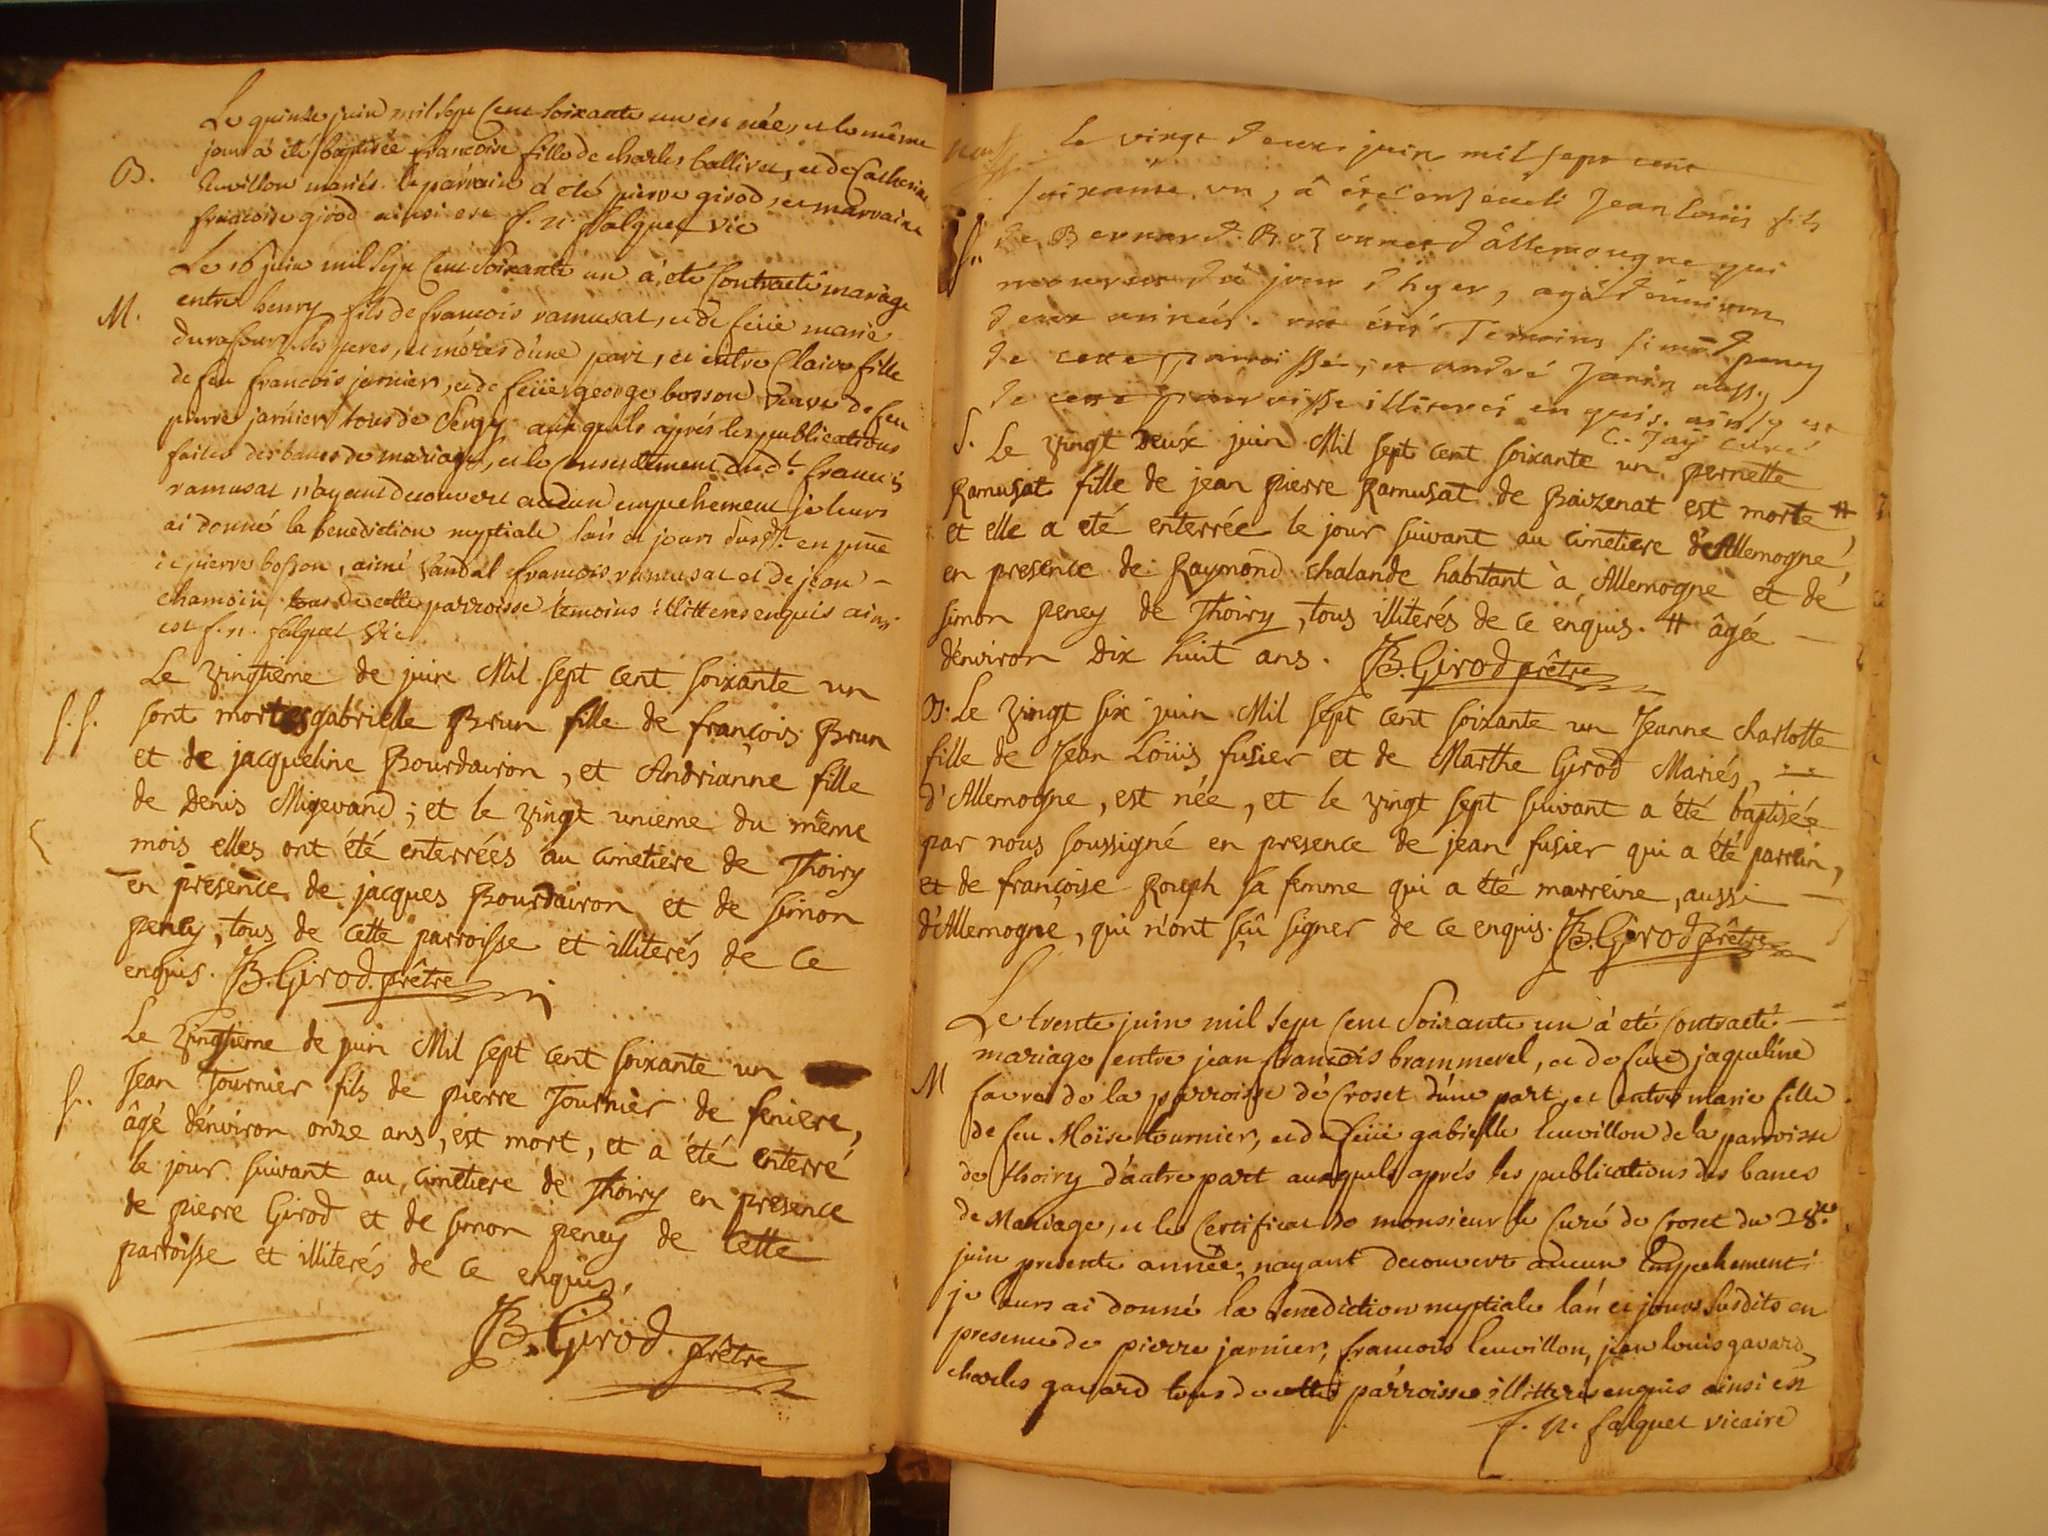 Le quinze juin mil sept cent soixante un est née, et le même
jour à été baptisée francoise fille de charles ballivet, et de Catherine
B.
levillon mariés. le parrain à eté pierre girod, et marraine
francoise girod ainsi est f. n. falquet vic
Le 16 juin mil sept cent soixante un à eté Contracté mariage
M.
entre henry fils de francois ramusat, et de feüe marie
durafour ses peres, et méres d'une part, et entre Claire fille
de feu francois jarnier, et de feüe george bosson veuve de feu
pierre jarnier tous de Sergy, auxquels aprés les publications
faites des bancs de mariage, et le Consentement dud.t francois
ramusat n'ayant decouvert aucun empechement je leurs
ai donné la benediction nuptiale l'an et jours susd.ts en
pierre bosson, aimé Vandal francois ramusat et de jean
chamoin tous de cette parroisse temoins illitterés enquis ainsi
est f. n. falquet Vic
Le vingtième de juin Mil sept cent soixante un
S. S.
sont mortes gabrielle Brun fille de françois Brun
et de jacqueline Bourdairon, et Andrianne fille
de Denis Migevand; et le vingt unieme du même
mois elles ont été enterrées au cimetiere de Thoiry
en presence de jacques Bourdairon et de simon
peney, tous de cette parroisse et illiterés de ce
enquis. JB. Girod. prêtre
Le vingtieme de juin Mil sept cent soixante un
Jean Tournier fils de pierre Tournier de feniere,
S.
âgé d'environ onze ans, est mort, et a été enterré
le jour suivant au cimetiere de Thoiry en presence
de pierre Girod et de simon peney de cette
parroisse et illiterés de ce enquis.
JB. Girod. prêtre
le vingt deux juin mil sept cent
soixante un, â été enseveli Jean louis fils
S.
de Bernard Rozonnet d'âllemougne qui
mourut du jour d'hyer, agé d'environ
deux années. ont étés Temoins simõd peney
de cette parroisse, et andré Janin aussy
de cette parroisse illiterés enquis. ainsy est
C. Jay curé
S. Le vingt Deux juin Mil sept cent soixante un, pernette
Ramusat fille de jean pierre Ramusat de Baizenat est morte #
et elle a eté enterrée le jour suivant au cimetiere d'Allemogne,
en presence de Raymond chalande habitant à Allemogne et de
simon peney de Thoiry, tous illitérés de ce enquis. # âgée
d'environ dix huit ans. JB. Girod prêtre
B. Le vingt six juin Mil sept cent soixante un Jeanne charlotte
fille de Jean Loüis fusier et de Marthe Girod Mariés,
d'Allemogne, est née, et le vingt sept suivant a été baptisée
par nous soussigné en presence de jean fusier qui a été parrein,
et de françoise Rouph sa femme qui a été marreine, aussi
d'Allemogne, qui n'ont sçû signer de ce enquis. JB. Girod prêtre
Le trente juin mil sept cent Soixante un à eté Contracté
mariage entre jean francois brammerel, et de feue jaqueline
M
favre de la parroisse de Croset d'une part, et entre marie fille
de feu Moïse tournier, et de feüe gabielle levvillon de la parroisse
de thoiry d'autre part auxquels aprés les publications des bancs
de Mariage, et le Certificat de monsieur le Curé de Croset du 28.e
juin presente année, nayant decouvert aucun Empechement
je leurs ai donné la benediction nuptiale lan et jours susdits en
presence de pierre jarnier, francois levvillon, jean louis gavard,
charles gavard tous de cette parroisse illitterés enquis ainsi est
f. n. falquet vicaire